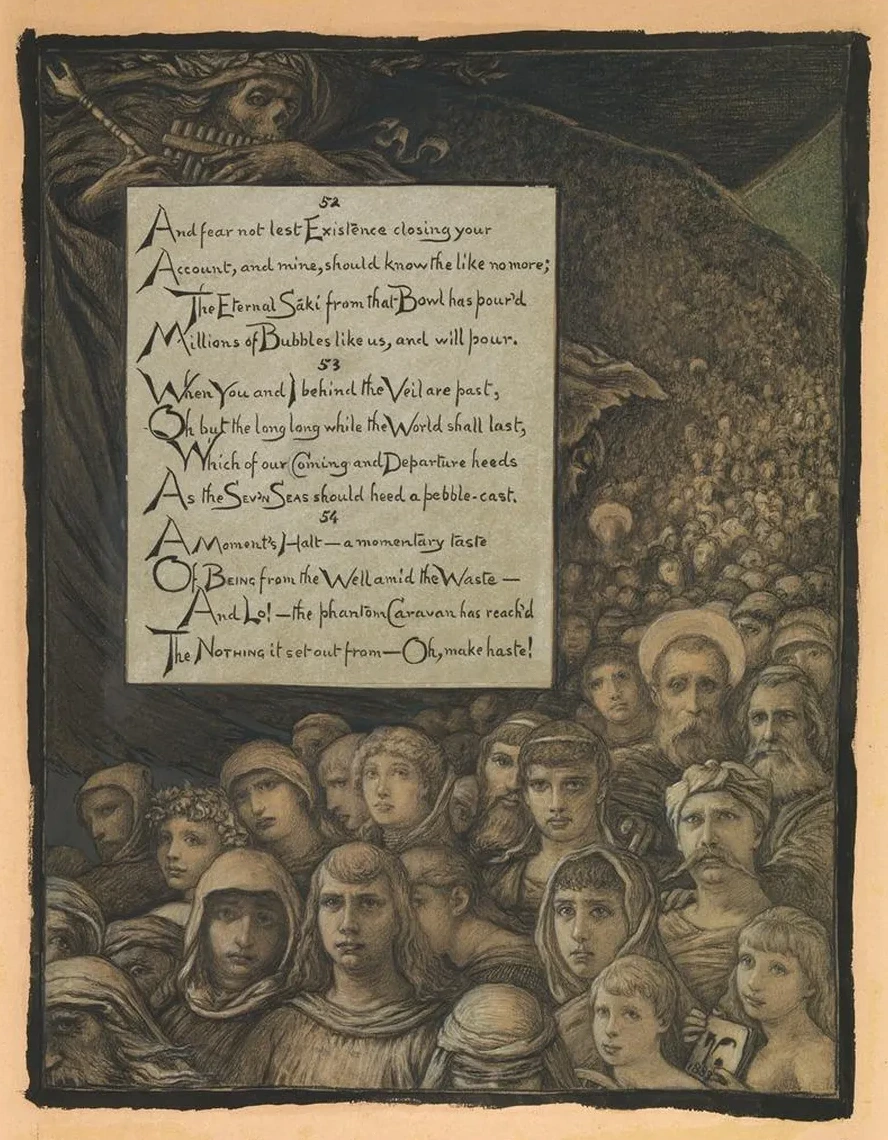 52
And fear not lest Existence closing your
Account, and mine, should know the like no more;
The Eternal Sákí from that Bowl has pour'd
Millions of Bubbles like us, and will pour.
53
When You and I behind the Veil are past,
Oh but the long long while the World shall last,
Which of our Coming and Departure heeds
As the SEV'N SEAS should heed a pebble-cast.
54
A Moment's Halt—a momentary taste
Of BEING from the Well amid the Waste—
And Lo!—the phantom Caravan has reach'd
The NOTHING it set out from—Oh, make haste!